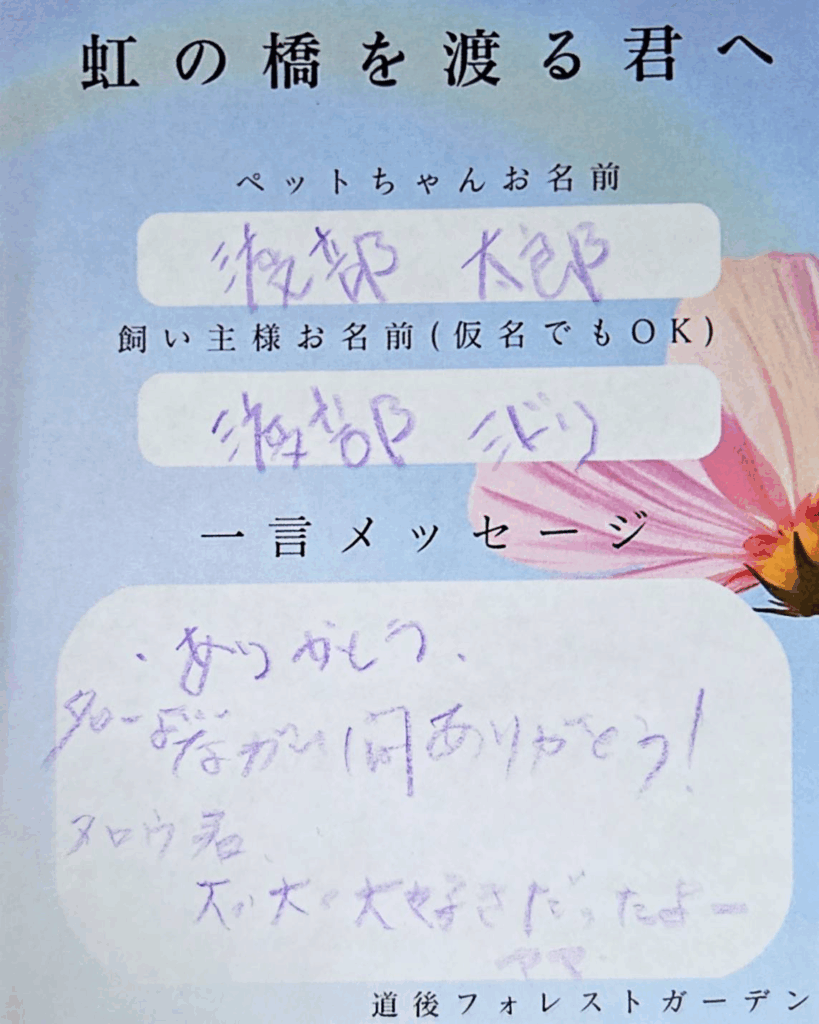 虹の橋を渡る君へ
ペットちゃんお名前
渡部 太郎
飼い主様お名前(仮名でもOK)
渡部 ミドリ
一言メッセージ
・ありがとう、
タロー ながい間ありがとう!
タロウ君、
大、大、大好きだったよー
ママ
道後フォレストガーデン